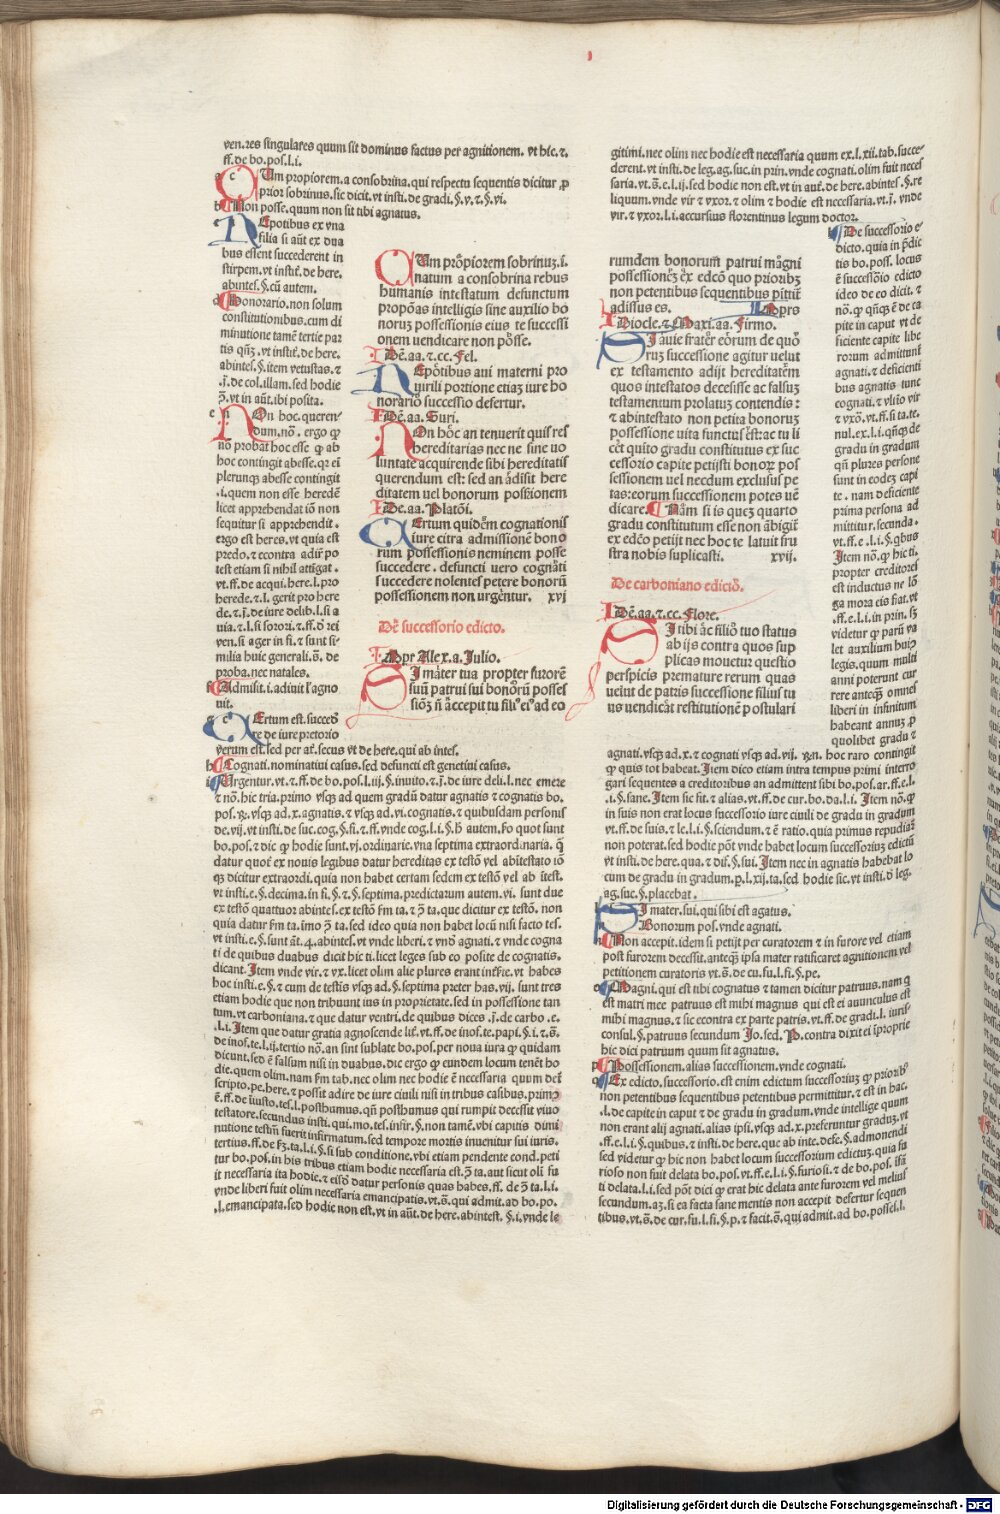 ven.res singulares quum sit dominus factus per agnitionem. vt hic.⁊.
ff.de bo.pos.l.i.
a CUm propiorem.a consobrina.qui respectu sequentis dicitur ꝓ
prior sobrinus.sic dicit.vt insti.de gradi.§.v.⁊.§.vi.
b Non posse.quum non sit tibi agnatus.
NEpotibus ex vna
filia si aūt ex dua
bus essent succederent in
stirpem.vt instit̄.de here.
abintes.§.cū autem.
d Honorario.non solum
constitutionibus.cum di
minutione tamē tertie par
tis qūʒ.vt instit̄.de here.
abintes.§.item vetustas.⁊
.j.de col.illam.sed hodie
ꝫ.vt in aūt.ibi posita.
e NOn hoc.queren/
dum.nō. ergo ꝙ
nō probat hoc esse ꝙ ab
hoc contingit abesse.qr eī
plerunqꝫ abesse contingit
.i.quem non esse heredē
licet apprehendat iō non
sequitur si apprehendit.
ergo est heres.vt quia est
predo.⁊ econtra adir̄ po
test etiam si nihil attigat.
vt.ff.de acqui.here.l.pro
herede.⁊.l.gerit pro here
de.⁊.j.de iure delib.l.si a
uia.⁊.l.si sorori.⁊.ff.ō rei
ven.si ager in fi.⁊ sunt si-
milia huic generali.s̄.de
proba.nec natales.
f Admisit.i.adiuit l'agno
uit.
g CErtum est.succedō
re de iure pretorio
verum est.sed per ar̄.secus vt de here.qui ab intes.
h Cognati.nominatiui casus.sed defuncti est genetiui casus.
i Urgentur.vt.⁊.ff.de bo.pos.l.iij.§.inuito.⁊.j.de iure deli.l.nec emere
⁊ nō.hic tria.primo vsqꝫ ad quem gradū datur agnatis ⁊ cognatis bo.
pos.⁊.vsqꝫ ad.x.agnatis.⁊ vsqꝫ ad.vi.cognatis.⁊ quibusdam personis
de.vij.vt insti.de suc.cog.§.fi.⁊.ff.vnde cog.l.i.§.h autem.so quot sunt
bo.pos.⁊ dic ꝙ hodie sunt.vj.ordinarie.vna septima extraordinaria.q̄
datur quoſ ex nouis legibus datur hereditas ex testō vel abitestato iō
qꝫ dicitur extraordi.quia non habet certam sedem ex testō vel ab itest.
vt insti.e.§.decima.in fi.§.⁊.§.septima.predictarum autem.vi. sunt due
ex testō quattuor abintes.ex testō s̄m ta.⁊ ꝯ̄ ta.que dicitur ex testō. non
quia datur s̄m ta.imo ꝯ̄ ta.sed ideo quia non habet locū nisi facto tes.
vt insti.e.§.sunt āt.q.abintes.vt vnde liberi.⁊ vnō agnati.⁊ vnde cogna
ti de quibus duabus dicit hic ti.licet leges sub eo posite de cognatis.
dicant.Item vnde vir.⁊ vx.licet olim alie plures erant int̄r̄ie.vt habes
hoc insti.e.§.⁊ cum de testis vsqꝫ ad.§.septima preter has.vij.sunt tres
etiam hodie que non tribuunt ius in proprietate.sed in possessione tan
tum.vt carboniana.⁊ que datur ventri.de quibus dices .j.de carbo .e.
.l.i.Item que datur gratia agnoscende lit̄.vt.ff.de inof.te.papi.§.i.⁊.s̄.
de inos.te.l.ij.tertio nō.an sint sublate bo.pos.per noua iura ꝙ quidam
dicunt.sed ē falsum nisi in duabus.dic ergo ꝙ eundem locum tenēt ho
die.quem olim.nam s̄m tab.nec olim nec hodie ē necessaria quum det̄
scripto.pe.here.⁊ possit adire de iure ciuili nisi in tribus casibus.primo
ē.ff.de iiusto.tes.l.posthumus.qn̄ posthumus qui rumpit decessit viuo
testatore.secundus insti.qui.mo.tes.infir.§.non tamē.vbi capitis dimi
nutione testm̄ fuerit infirmatum.sed tempore mortis inuenitur sui iuris.
tertius.ff.de s̄ꝫ.ta.l.i.§.si sub conditione.vbi etiam pendente cond.peti
tur bo.pos.in his tribus etiam hodie necessaria est.ꝯ̄ ta.aut sicut oli fu
it necessaria ita hodie.⁊ eisō datur personis quas habes.ff. de ꝯ̄ ta.l.i.
vnde liberi fuit olim necessaria emancipatis.vt.s̄.qui admit.ad bo.po.
.l.emancipata.sed hodie non est.vt in aūt.de here.abintest. §.i.vnde le
CUm prōpiorem sobrinuʒ.i.
natum a consobrina rebus
humanis intestatum defunctum
propōas intelligis sine auxilio bo
noruʒ possessionis eius te successi
onem uendicare non pōsse.
IDē.aa.⁊.cc.Fel.
NEpōtibus aui materni pro
uirili portione etiaʒ iure ho
norariō successio defertur.
IDē.aa.Suri.
NOn hōc an tenuerit quis res
hereditarias nec ne sine uo
luntate acquirende sibi hereditatis
querendum est: sed an ādīsit here
ditatem uel bonorum possēionem
IDe.aa.Platōi.
CErtum quidēm cognationis
iure citra admissionē bono
rum possessionis neminem posse
succedere . defuncti uero cognāti
succedere nolentes petere bonorū
possessionem non urgēntur. xvi
Dē successorio edicto.
Impr Alex.a. Iulio.
SI māter tua propter furorē
suū patrui sui bonōrū posses
siōʒ n̄ āccepit tu fili' ei' ad eo
gitimi.nec olim nec hodie est necessaria quum ex.l.xii.tab.succe-
derent.vt insti.de leg.ag.suc.in prin.vnde cognati.olim fuit neces
saria.vt.s̄.e.l.ij.sed hodie non est.vt in aut̄.de here.abintes.§.re
liquum.vnde vir ⁊ vxor.⁊ olim ⁊ hodie est necessaria.vt.j. vnde
vir.⁊ vxor.l.i.accursius florentinus legum doctor.
rumdem bonorum patrui māgni
possessionēʒ ēx edcō quo prioribꝫ
non petentibus sequentibus pm̄ittit̄
adissus es. Imprs
Diocle.⁊ Maxi.aa.Firmo.
SI auie fratēr eōrum de quō
ruʒ successione agitur uelut
ex testamento adijt hereditatēm
quos intestatos decesisse ac falsuʒ
testamentum prolatuʒ contendis:
⁊ abintestato non petita bonoruʒ
possessione uita functus ēst:ac tu li
cēt quīto gradu constitutus ex suc
cessorio capite petijsti bonoꝝ pos
sessionem uel necdum exclusus pe
tas:eorum successionem potes uē
dicare. Nām si is quez quarto
gradu constitutum esse non ābigīr
ex edcō petijt nec hoc te latuit fru
stra nobis suplicasti. xvij.
De carboniano edictō.
IDē.aa.⁊.cc.Flore.
SI tibi āc filiō tuo status
ab ijs contra quos sup
plicas mouetur questio
perspicis premature rerum quas
uelut de patris successione filius tu
us uendicāt restitutionē postulari
k De successorio e-
dicto.quia in p̄dic
tis bo.poss. locus
ē successōio edicto
ideo de eo dicit.⁊
nō.ꝙ qn̄qꝫ ē de ca
pite in caput vt de
ficiente capite libe
rorum admittunt̄
agnati.⁊ deficienti
bus agnatis tunc
cognati.⁊ vltīo vir
⁊ vxō.vt.ff.si ta.te.
nul.ex.l.i.qn̄qꝫ de
gradu in gradum
qn̄ plures persone
sunt in eodeʒ capi
te . nam deficiente
prima persona ad
mittitur.secunda.
vt.ff.e.l.i.§.qbus
Item nō.ꝙ hic ti.
propter creditores
est inductus ne lō
ga mora eis fiat.vt
.ff.e.l.i.in prin.sꝫ
videtur ꝙ parū va
let auxilium huiꝰ
legis.quum multi
anni poterunt cur
rere anteqꝫ omnes
liberi in infinitum
habeant annuʒ ꝓ
quolibet gradu ⁊
agnati.vsqꝫ ad.x.⁊ cognati vsqꝫ ad.vij. ⁊n. hoc raro contingit
ꝙ quis tot habeat.Item dico etiam intra tempus primi interro
gari sequentes a creditoribus an admittent sibi bo.pos.ar.ff.e.l.
.i.§.sane.Item sic fit.⁊ alias.vt.ff.de cur.bo.da.l.i. Item nō.ꝙ
in suis non erat locus successorio iure ciuili de gradu in gradum
vt.ff.de suis.⁊ le.l.i.§.sciendum.⁊ ē ratio.quia primus repudiar̄
non poterat.sed hodie pōt vnde habet locum successoriuʒ edictū
vt insti.de here.qua.⁊ diff.§.sui.Item nec in agnatis habebat lo
cum de gradu in gradum.p̱.l.xij.ta.sed hodie sic.vt insti.ō leg.
ag.suc.§.placebat.
l SI mater.sui.qui sibi est agatus.
Bonorum pos.vnde agnati.
n Non accepit.idem si petijt per curatorem ⁊ in furore vel etiam
post furorem decessit.anteqꝫ ipsa mater ratificaret agnitionem vel
petitionem curatoris vt.s̄.de cu.fu.l.fi.§.pe.
o Magni.qui est tibi cognatus ⁊ tamen dicitur patruus.nam q
est matri mee patruus est mihi magnus qui est ei auunculus est
mihi magnus.⁊ sic econtra ex parte patris.vt.ff.de gradi.l. iuris-
consul.§.patruus secundum Jo.sed. P.contra dixit ei īproprie
hic dici patruum quum sit agnatus.
p Possessionem.alias successionem.vnde cognati.
q Ex edicto.successorio.est enim edictum successoriuʒ ꝙ prioribꝰ
non petentibus sequentibus petentibus permittitur.⁊ est in hac.
.l.de capite in caput ⁊ de gradu in gradum.vnde intellige quum
non erant alij agnati.alias ipsi.vsqꝫ ad.x.preferuntur graduʒ.vt
.ff.e.l.i.§.quibus.⁊ insti.de here.que ab inte.defe.§.admonendi
sed videtur ꝙ hic non habet locum successorium edictuʒ.quia fu
rioso non fuit delata bo.pos.vt.ff.e.l.i.§.furiosi.⁊ de bo.pos. isā
ti delata.l.i.sed pōt dici ꝙ erat hic delata ante furorem vel melius
secundum.aʒ.si ea facta sane mentis non accepit defertur sequen
tibus.vt.s̄.de cur.fu.l.fi.§.p.⁊ facit.s̄.qui admit.ad bo.posses.l.
Digitalisierung gefördert durch die Deutsche Forschungsgemeinschaft - DFG